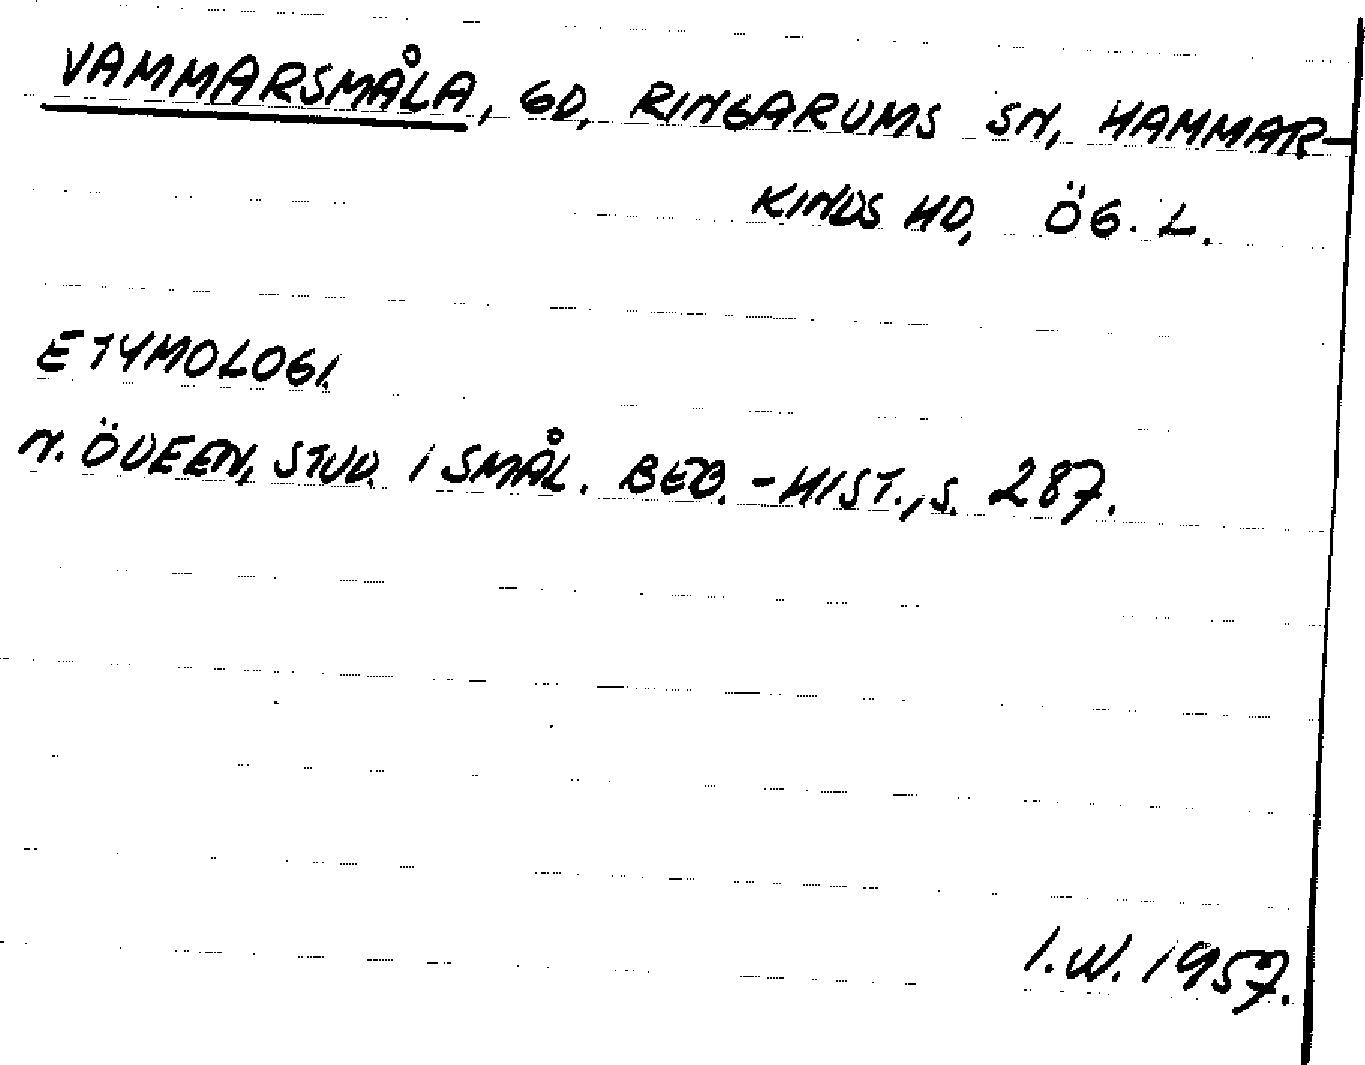 VAMMARSMÅLA, GD, RINGARUMS SN, HAMMAR-
KINDS HD, ÖG. L.
ETYMOLOGI.
N. ÖDEEN, STUD. I SMÅL. BEB.-HIST., S. 287.
I.W. 1957.